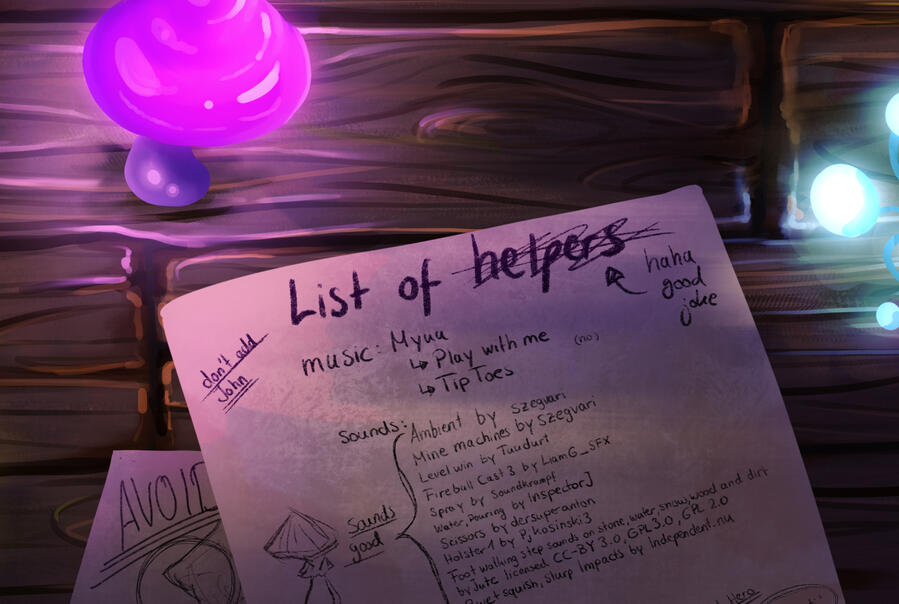 List of helpers
haha
good
joke
don't add
John
music: Myuu
↳ Play with me (no)
↳ Tip Toes
Sounds:
Ambient by Szegvari
Mine machines by Szegvari
Level win by Tuudurt
Fireball Cast 3 by LiamG_SFX
Spray by Soundkrampf
Water, Pouring by InspectorJ
Scissors by dersuperanton
Holster1 by PJKosinski3
Foot walking step sounds on stone, water, snow, wood and dirt
by Jute licensed CC-BY 3.0, GPL 3.0, GPL 2.0
squish, slurp Impacts by Independent.nu
Sounds
good
AVOID
Hero